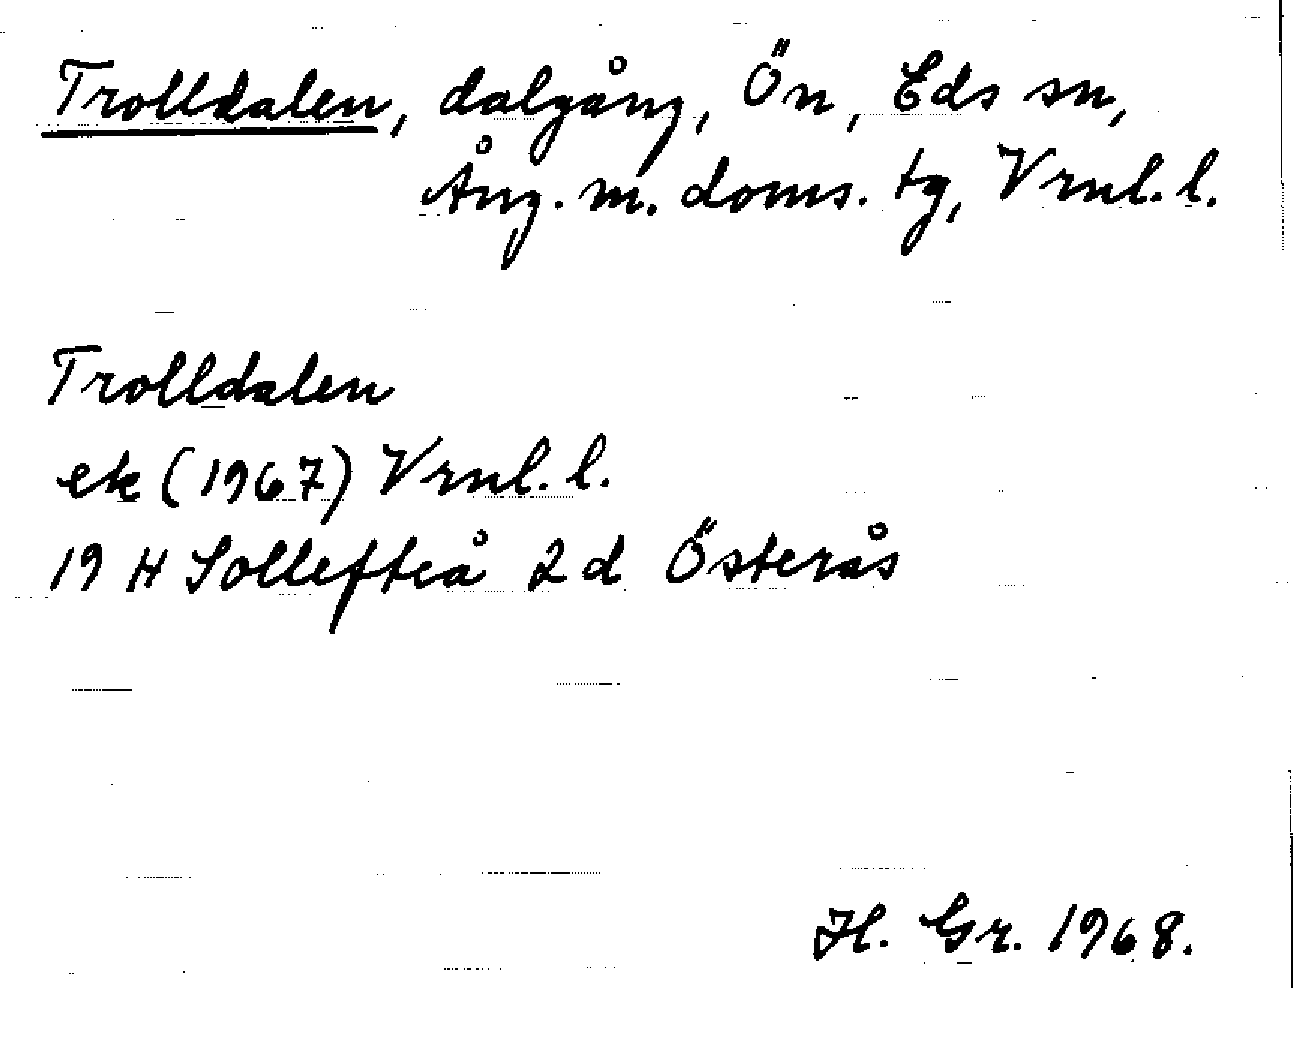 Trolldalen, dalgång, Ön, Eds sn,
Ång. m. doms. tg, Vrnl. l.
Trolldalen
ek (1967) Vrnl. l.
19 H Sollefteå 2 d Österås
H. Gr. 1968.